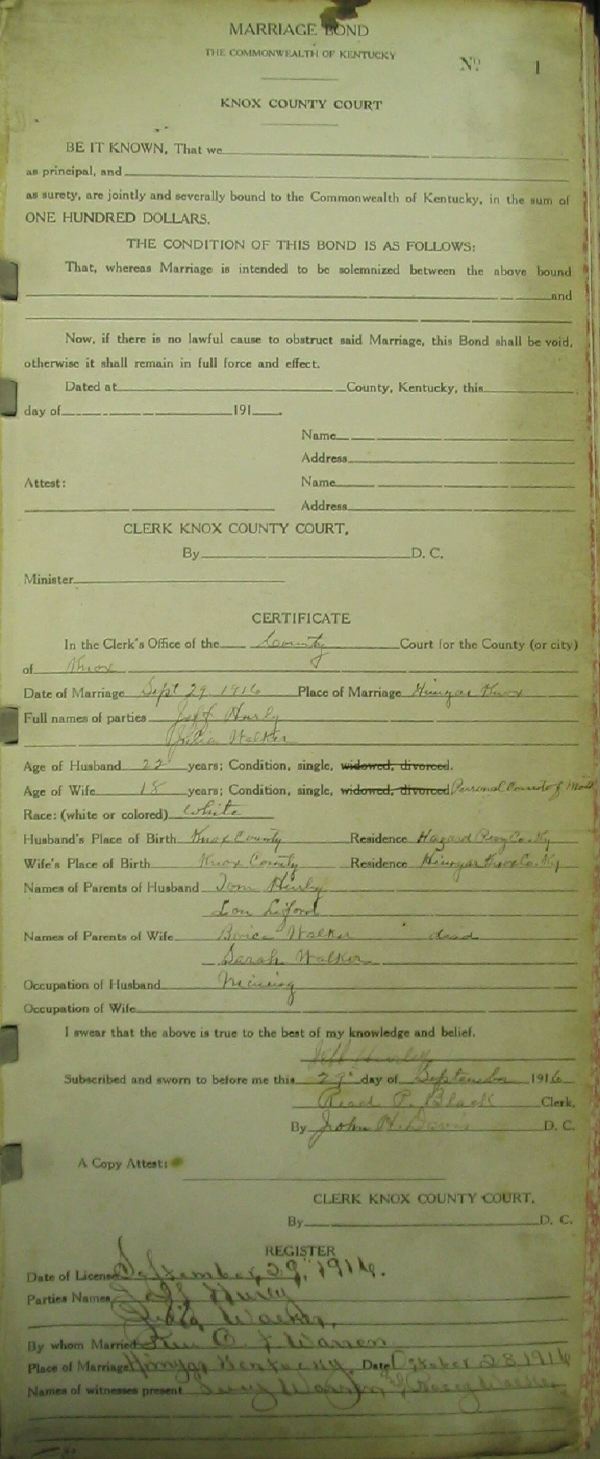 MARRIAGE BOND
THE COMMONWEALTH OF KENTUCKY
No 1
KNOX COUNTY COURT
BE IT KNOWN, That we
as principal, and
as surety, are jointly and severally bound to the Commonwealth of Kentucky, in the sum of
ONE HUNDRED DOLLARS.
THE CONDITION OF THIS BOND IS AS FOLLOWS:
That, whereas Marriage is intended to be solemnized between the above bound
and
Now, if there is no lawful cause to obstruct said Marriage, this Bond shall be void,
otherwise it shall remain in full force and effect.
Dated at County, Kentucky, this
day of 191 .
Name
Address
Attest: Name
Address
CLERK KNOX COUNTY COURT.
By D. C.
Minister
CERTIFICATE
In the Clerk's Office of the County Court for the County (or city)
of Knox
Date of Marriage Sept 29 1916 Place of Marriage Knox
Full names of parties Jeff Hurly
Walker
Age of Husband 22 years; Condition, single, widowed, divorced.
Age of Wife 18 years; Condition, single, widowed, divorced Personal Consent of
Race: (white or colored) White
Husband's Place of Birth Knox County Residence Hazard Perry Co. Ky
Wife's Place of Birth Knox County Residence Knox Co. Ky
Names of Parents of Husband Tom Hurly
Names of Parents of Wife Walker dead
Sarah Walker
Occupation of Husband Mining
Occupation of Wife
I swear that the above is true to the best of my knowledge and belief.
Jeff Hurley
Subscribed and sworn to before me this 29 day of September 1916
Read P. Black Clerk.
By John H. Davis D. C.
A Copy Attest:
CLERK KNOX COUNTY COURT.
By D. C.
REGISTER
Date of License September 29, 1916.
Parties Names Jeff Hurly
Walker
By whom Married Warren
Place of Marriage Kentucky. Date October 28 1916
Names of witnesses present